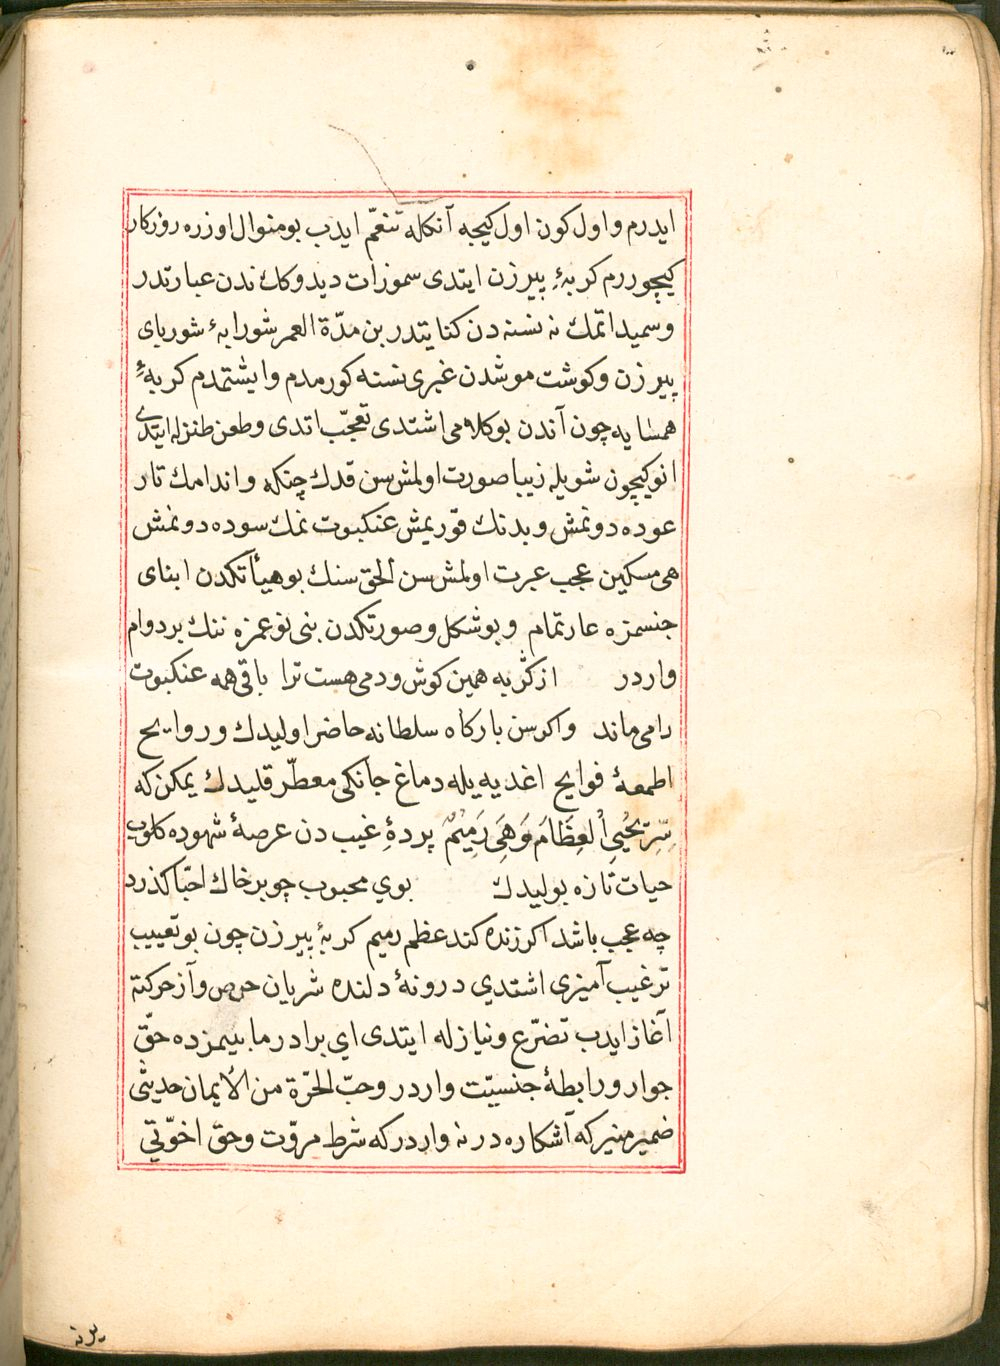 ايدرم و اول كون اول كيجه آنكله تنعّم ايدب بو منوال اوزره روزكار
كيچوررم كربهٔ پيرزن ايتدى سموزات ديدوكك ندن عبارتدر
و سميد اتمك نه نسنه دن كنايتدر بن مدّة العمر شورابهٔ شورباى
پيرزن و كوشت موشدن غيرى نسنه كورمدم و ايشتمدم كربهٔ
همسايه چون آندن بو كلامى اشتدى تعجّب اتدى و طعن طنزله ايتدى
انوكيچون شويله زيبا صورت اولمش سن قدك چنكه و اندامك تار
عوده دونمش و بدنك قوريمش عنكبوت نمك سوده دونمش
هى مسكين عجب عبرت اولمش سن الحق سنك بو هيأتكدن ابناى
جنسمزه عار تمام و بو شكل و صورتكدن بنى نوعمزه ننك بر دوام
واردر از كربه همين كوش و دمى هست ترا باقى همه عنكبوت
رامى ماند و اكر سن باركاه سلطانه حاضر اوليدك و روايح
اطمعهٔ فوايح اغذيه يله دماغ جانكى معطّر قليدك يمكن كه
سِرّ يُحْيِي الْعِظَامَ وَهِيَ رَمِيمٌ پردهٔ غيب دن عرصهٔ شهوده كلوب
حيات تازه بوليدك بوي محبوب چو بر خاك احبّا كذرد
چه عجب باشد اكر زنده كند عظم رميم كربهٔ پيرزن چون بو تعييب
ترغيب آميزى اشتدي درونهٔ دلنده شريان حرص و آز حركته
آغاز ايدب تضرّع و نيازله ايتدى اي برادر مابينمزده حقّ
جوار و رابطهٔ جنسيّت واردر و حبّ الحرّة من الأيمان حديثى
ضمير منيركه آشكاره در نه واردر كه شرط مروّت و حق اخوّتي
يرنه